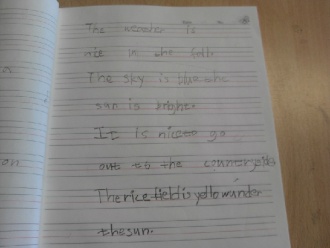 The weader is
nice in the fall.
The sky is blue the
sun is bright.
It is nice to go
out to the countryside
The rice field is yellow under
the sun.
on